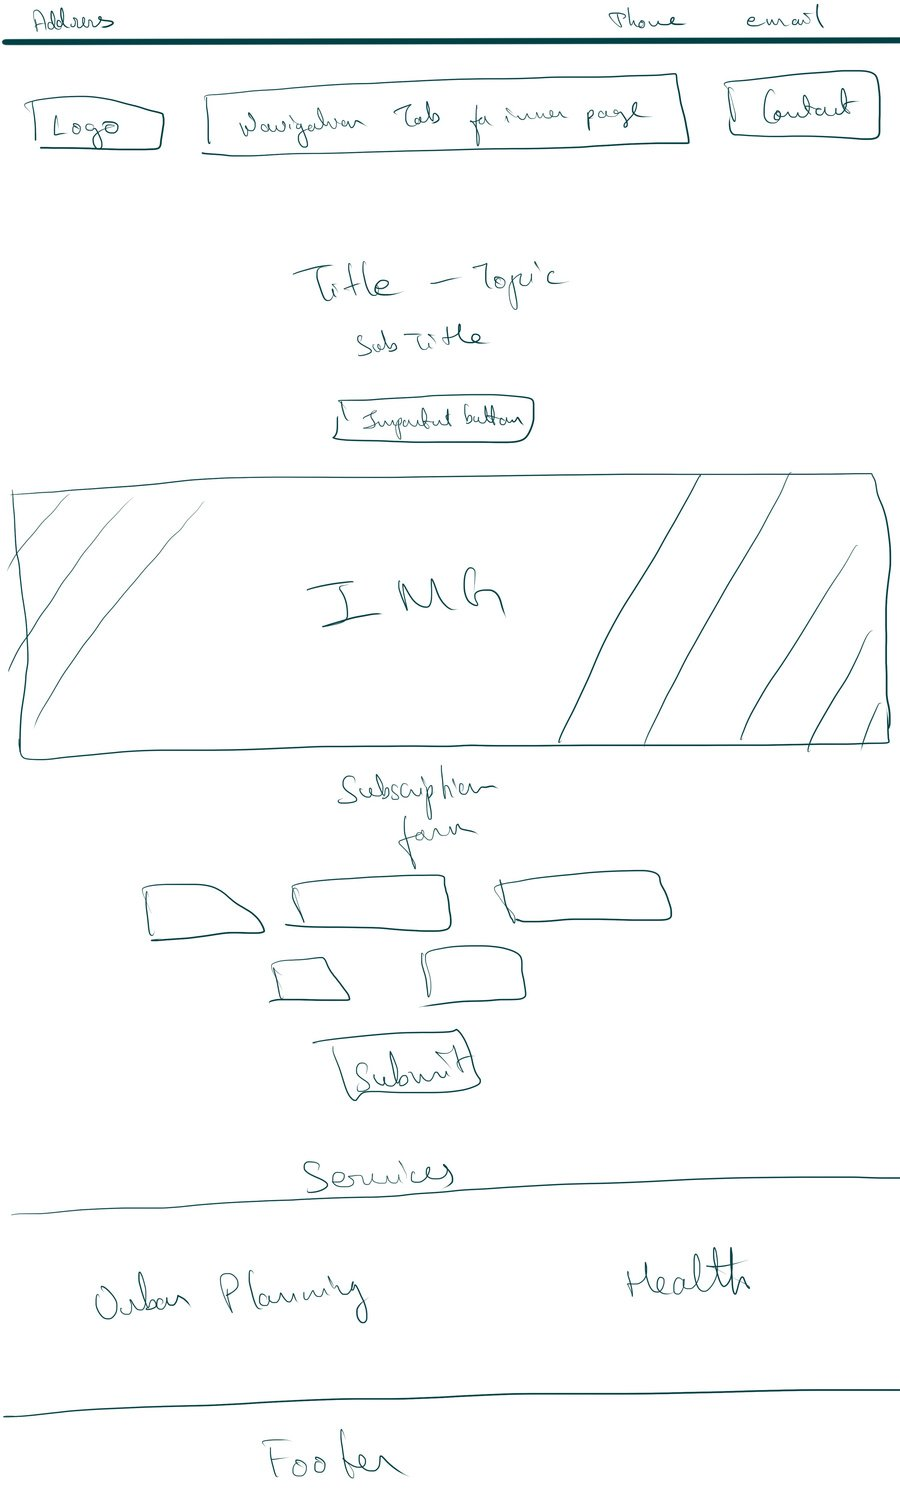 Address Phone email
Logo Navigation Tab for inner page Contact
Title - Topic
Sub Title
Important button
IMG
Subscription
form
Submit
Services
Urban Planning Health
Footer